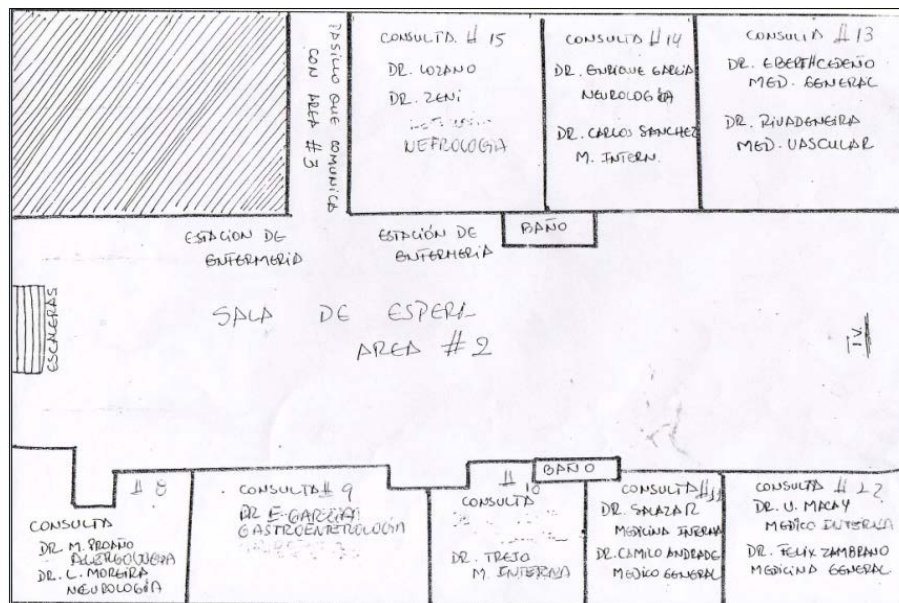 PASILLO QUE COMUNICA
CON AREA #3
CONSULTA # 15
DR. LOZANO
DR. ZENI
NEFROLOGIA
CONSULTA #14
DR. ENRIQUE GARCIA
NEUROLOGIA
DR. CARLOS SANCHEZ
M. INTERN.
CONSULTA # 13
DR. EBERTH CEDEÑO
MED. GENERAL
DR. RIVADENEIRA
MED. VASCULAR
ESTACION DE
ENFERMERIA
ESTACIÓN DE
ENFERMERIA
BAÑO
ESCALERAS
SALA DE ESPERA
AREA #2
T.V.
# 8
CONSULTA
DR. M. PROAÑO
DR. L. MOREIRA
NEUROLOGIA
CONSULTA # 9
DR E-GARCIA
GASTROENTEROLOGIA
# 10
CONSULTA
DR. TREJO
M. INTERNA
BAÑO
CONSULTA #11
DR. SALAZAR
MEDICINA INTERNA
DR. CAMILO ANDRADE
MEDICO GENERAL
CONSULTA #
DR. U. MACAY
MEDICO INTERNA
DR. FELIX ZAMBRANO
MEDICINA GENERAL